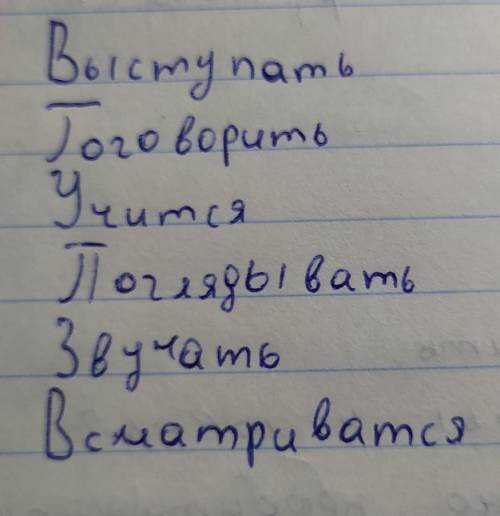 Выступать
Поговорить
Учится
Поглядывать
Звучать
Всматриватся